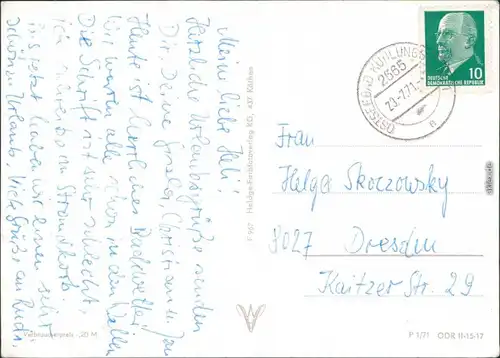 Meine liebe Heli!
Herzliche Urlaubsgrüße senden
Dir, Deine Christiane u. Jan
Heute ist herrliches Badewetter.
Wir waren alle schon in den Wellen
Die Schrift ist sehr schlecht,
ich sitze im Strandkorb.
Bis jetzt haben wir einen sehr
schönen Urlaub. Viele Grüße an Rudi.
Verbraucherpreis -,20 M
F 967 Heldge-Farbfotoverlag KG, 437 Köthen
OSTSEEBAD KÜHLUNGSBORN
2565
23.-7.71.
a
DEUTSCHE
DEMOKRATISCHE REPUBLIK
10
Frau
Helga Skoczowsky
8027 Dresden
Kaitzer Str. 29
P 1/71 DDR 11-15-17